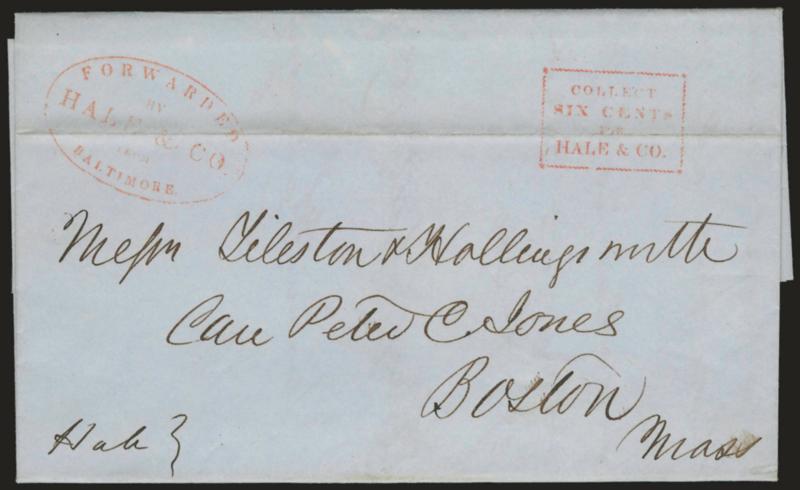 FORWARDED
BY
HALE & CO.
FROM
BALTIMORE.
COLLECT
SIX CENTS
FOR
HALE & CO.
Messrs Tileston & Hollingsworth
Care Peter C. Jones
Boston
Mass
Hale